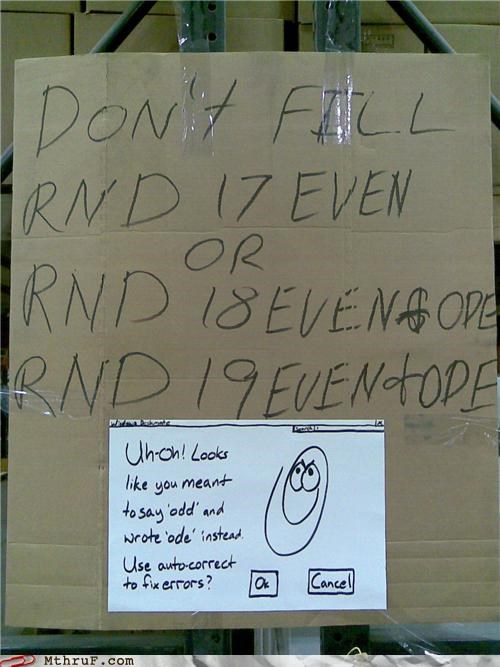 DON't FILL
RND 17 EVEN
OR
RND 18 EVEN & ODE
RND 19 EVEN & ODE
Uh-oh! Looks
like you meant
to say 'odd' and
wrote 'ode' instead.
Use auto-correct
to fix errors?
Ok Cancel
MthruF.com